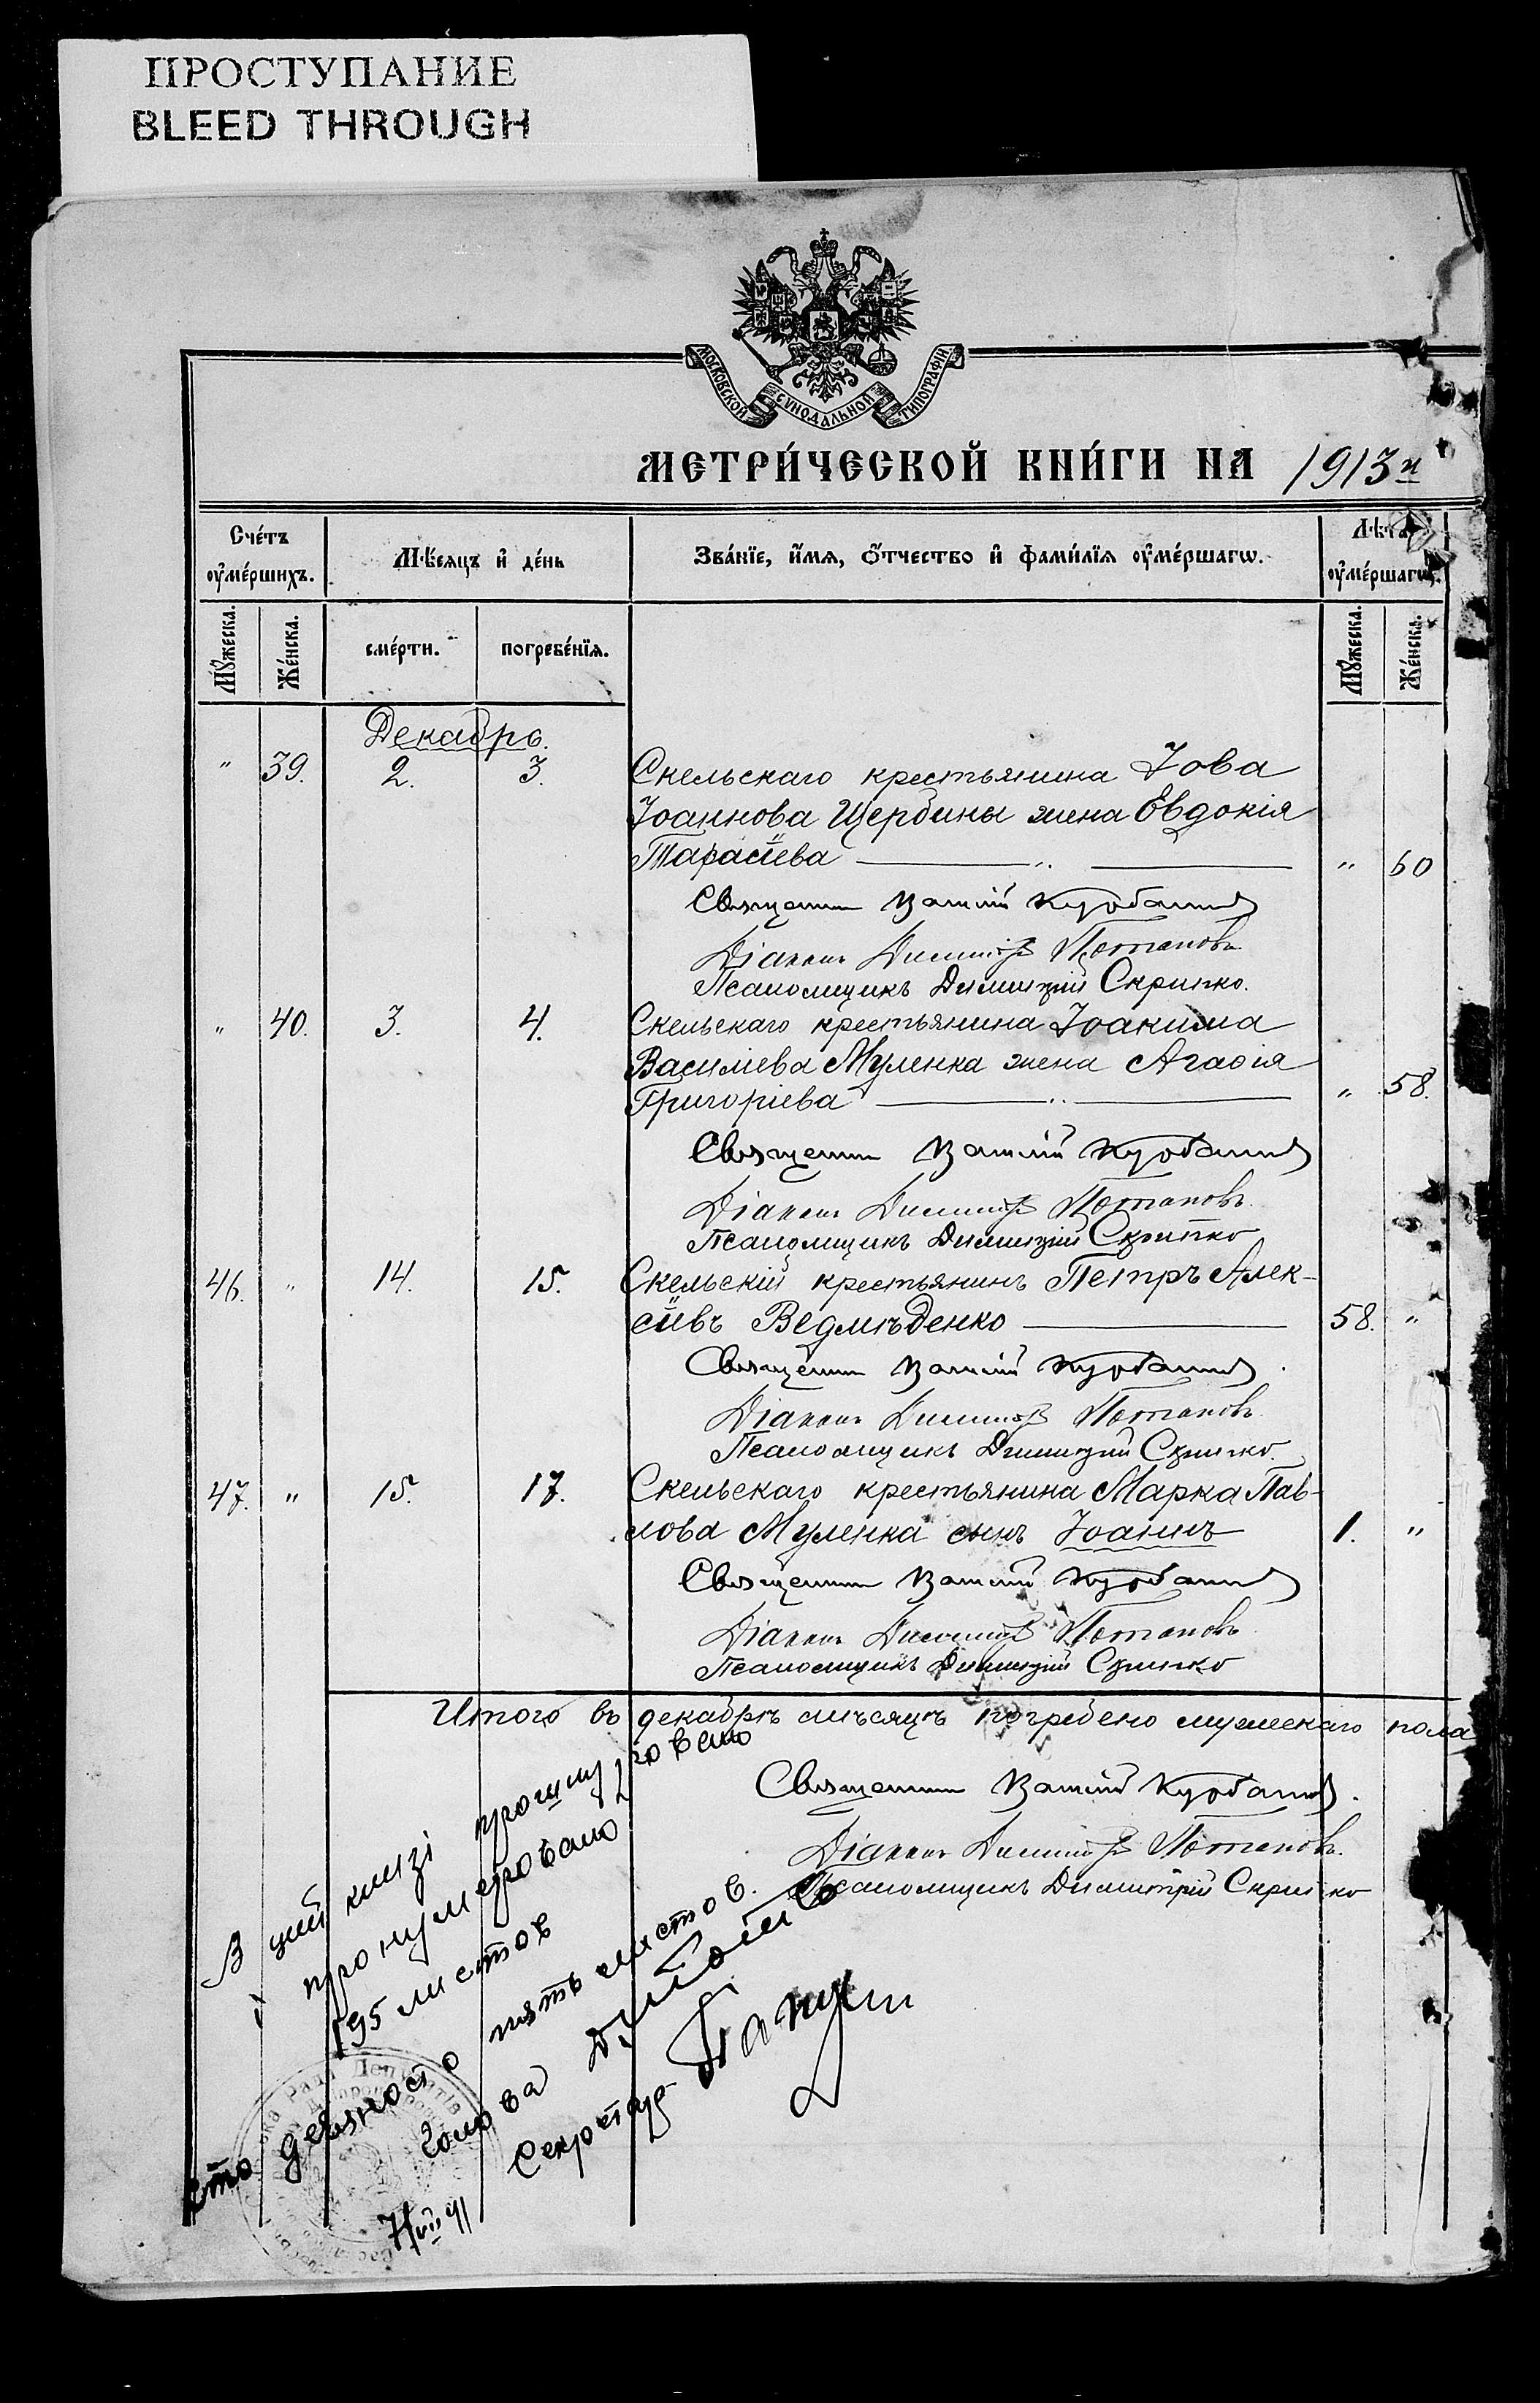 ПРОСТУПАНИЕ
BLEED THROUGH
МОСКОВСКОЙ СѴНОДАЛЬНОЙ ТИПОГРАФІИ
МЕТРИ́ЧЕСКОЙ КНИ́ГИ НА 1913й
Сче́тъ ѹ҆ме́ршихъ.
Мѣ́сяцъ и҆ де́нь
Зва́нїе, и҆́мѧ, ѻ҆́тчество и҆ фами́лїѧ ѹ҆ме́ршагѡ.
Лѣ́та ѹ҆ме́ршагѡ.
Мꙋ́жеска.
Же́нска.
сме́рти.
погребе́нїѧ.
Мꙋ́жеска.
Же́нска.
Декабрь.
" 39. 2. 3. Скельскаго крестьянина Іова
Іоаннова Щербины жена Евдокія
Тарасіева " 60
Священникъ Василій Курбанивъ
Діаконъ Димитрій Потаповъ
Псаломщикъ Димитрій Скрипко.
" 40. 3. 4. Скельскаго крестьянина Іоакима
Василіева Муленка жена Агафія
Григоріева " 58.
Священникъ Василій
Діаконъ Димитрій Потаповъ.
Псаломщикъ Димитрій Скрипко
46. " 14. 15. Скельскій крестьянинъ Петръ Алек-
сіевъ Ведмѣденко 58. "
Священникъ Василій
Діаконъ Димитрій Потаповъ
Псаломщикъ Димитрій Скрипко.
47. " 15. 17. Скельскаго крестьянина Марка Пав-
лова Муленка сынъ Іоаннъ 1. "
Священникъ Василій
Діаконъ Димитрій Потаповъ
Псаломщикъ Димитрій Скрипко
Итого въ декабрѣ мѣсяцѣ погребено мужескаго пола
Священникъ Василій
Діаконъ Димитрій Потаповъ.
Псаломщикъ Димитрій Скрипко
В ций книзі прошнуровано
і пронумеровано
195 листов
сто девяносто пять листов.
Голова
Секретарь